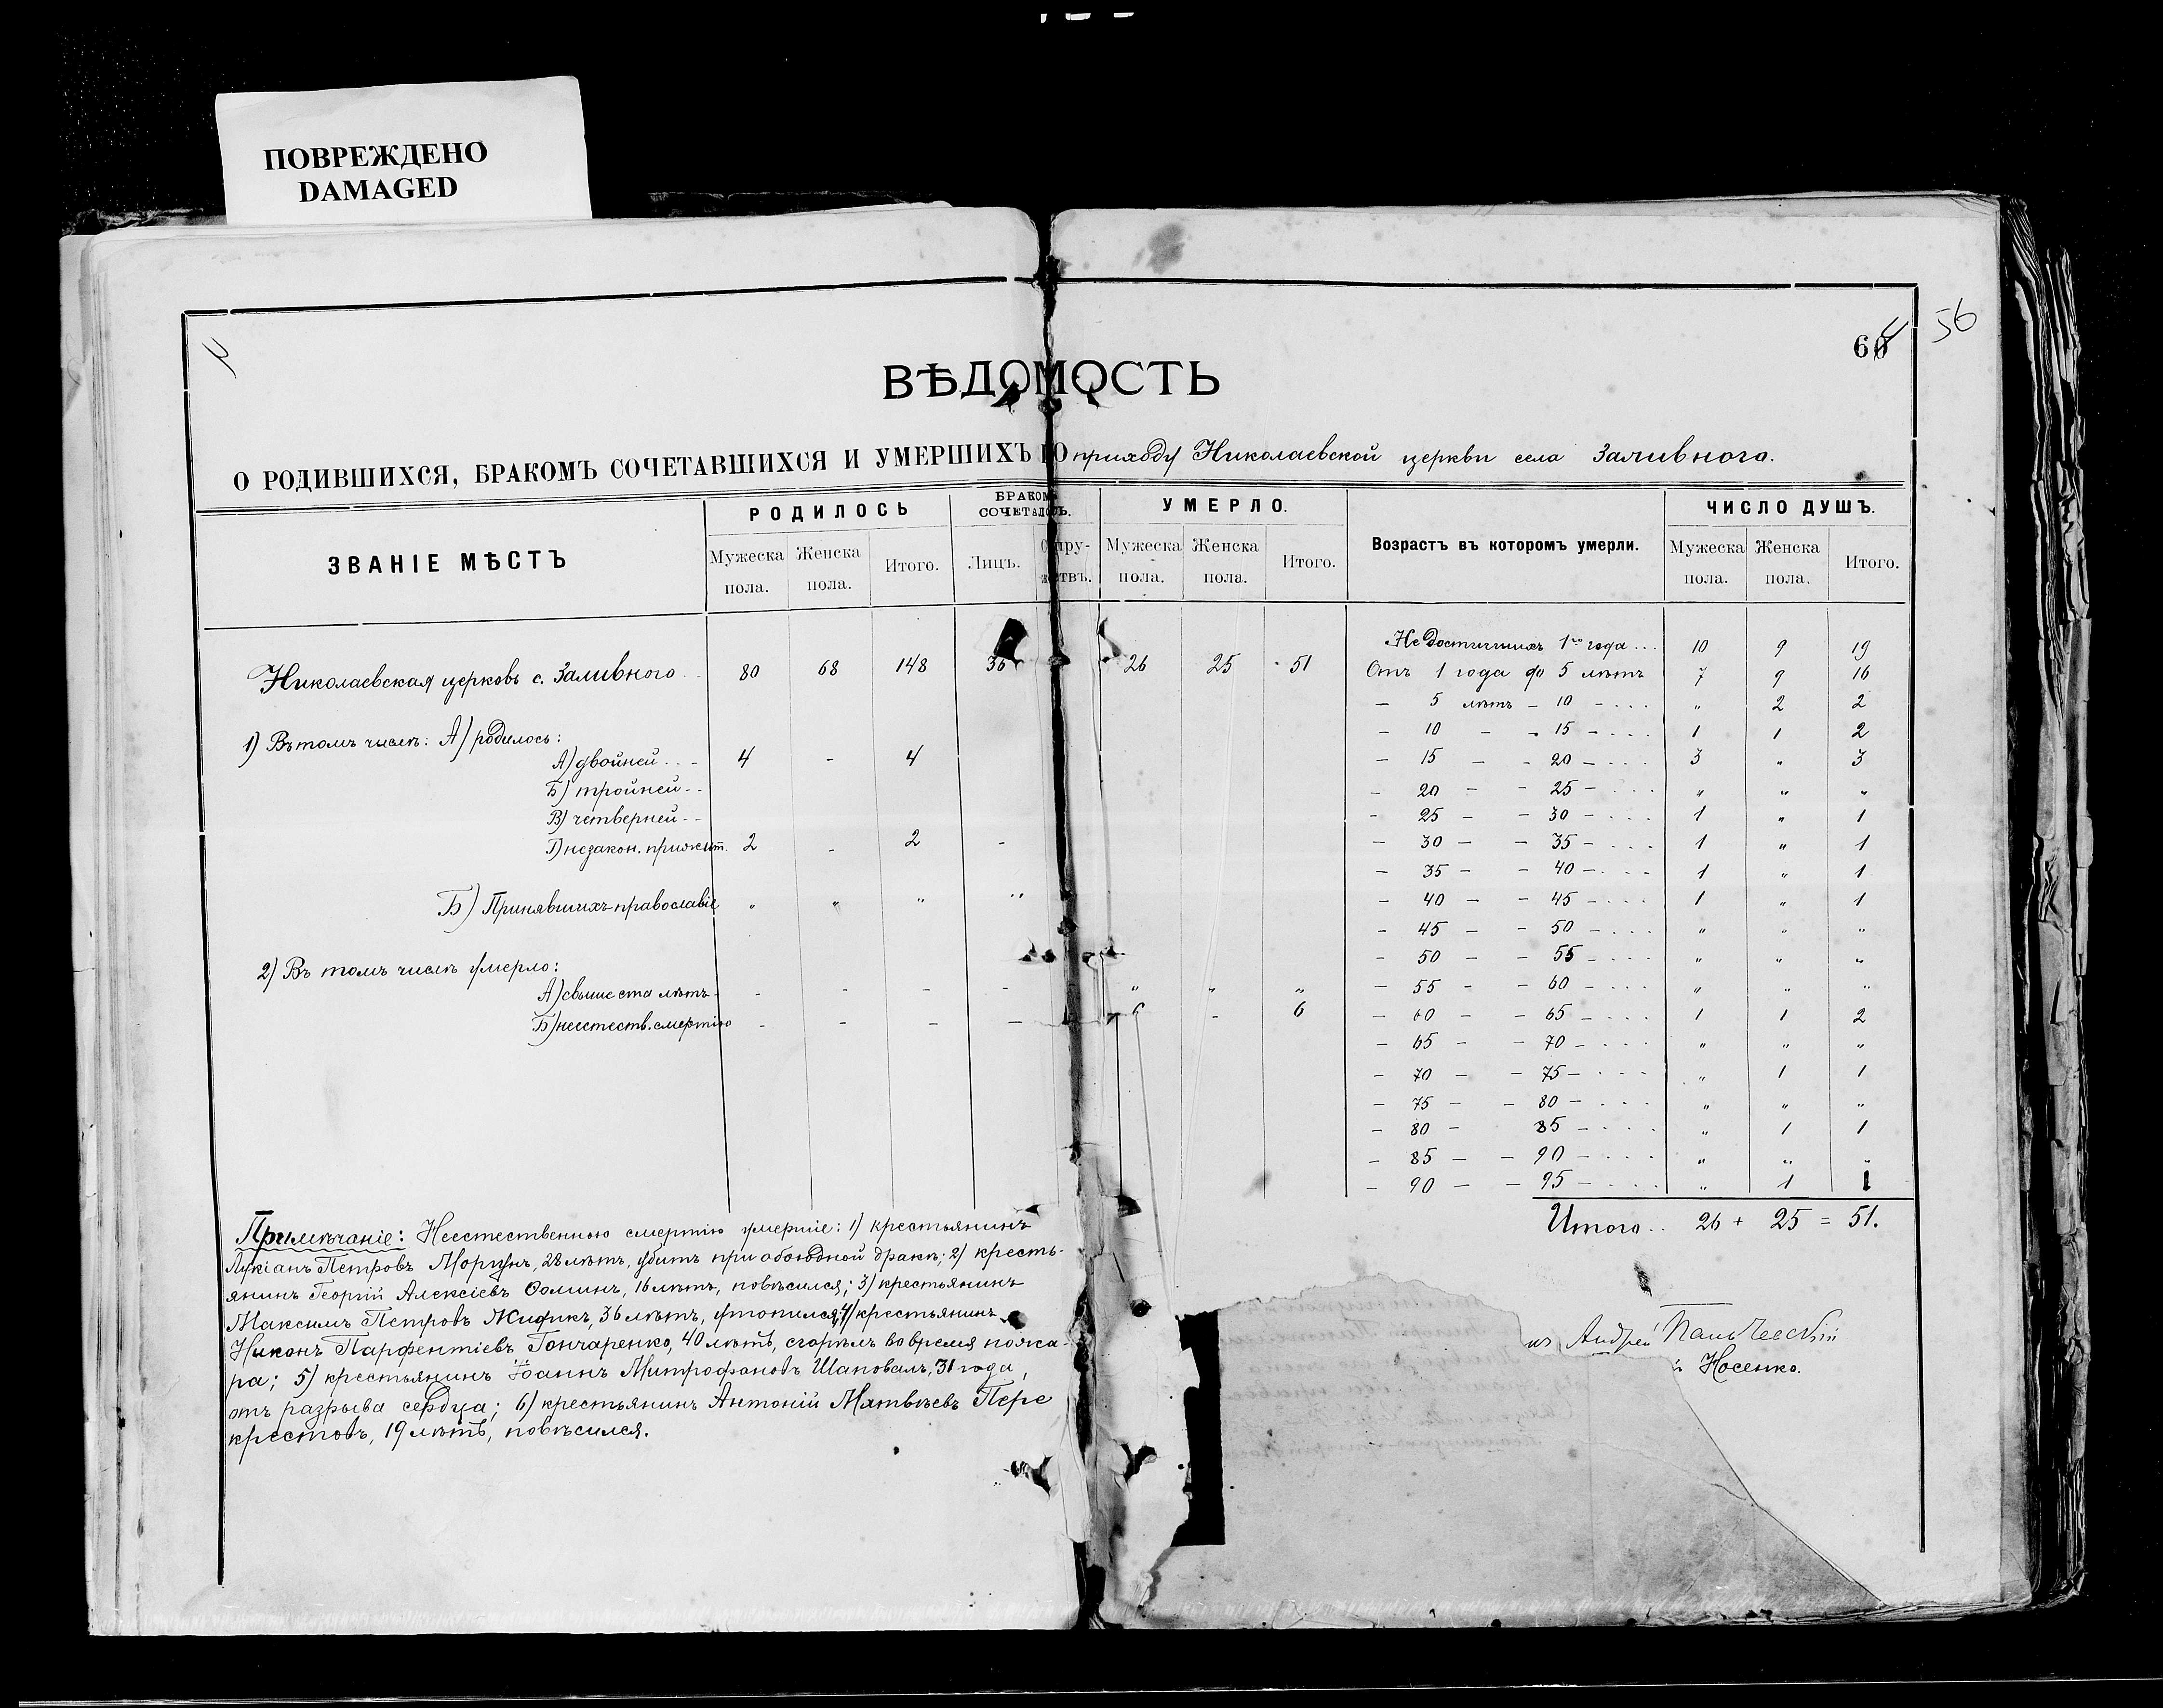 ПОВРЕЖДЕНО
DAMAGED
56
60
ВѢДОМОСТЬ
О РОДИВШИХСЯ, БРАКОМЪ СОЧЕТАВШИХСЯ И УМЕРШИХЪ ПО приходу Николаевской церкви села Заливного.
ЗВАНІЕ МѢСТЪ
РОДИЛОСЬ
Мужеска пола. Женска пола. Итого.
БРАКОМЪ СОЧЕТАЛОСЬ.
Лицъ. Супружествъ.
УМЕРЛО.
Мужеска пола. Женска пола. Итого.
Возрастъ въ которомъ умерли.
ЧИСЛО ДУШЪ.
Мужеска пола. Женска пола. Итого.
Николаевская церковь с. Заливного 80 68 148 36 26 25 51
1) Въ томъ числѣ: А) родилось:
А) двойней . . - 4 - 4
Б) тройней - -
В) четверней - -
Г) незакон. прижит. 2 - 2 -
Б) Принявшихъ православіе " " " "
2) Въ томъ числѣ умерло:
А) свыше ста лѣтъ - - - - - " " "
Б) неестеств. смертію - - - - 6 - 6
Не достигшихъ 1го года . . . 10 9 19
Отъ 1 года до 5 лѣтъ 7 9 16
- 5 лѣтъ - 10 - . . . " 2 2
- 10 - - 15 - . . . 1 1 2
- 15 - - 20 - . . . 3 " 3
- 20 - - 25 - . . . " " "
- 25 - - 30 - . . . 1 " 1
- 30 - - 35 - . . . 1 " 1
- 35 - - 40 - . . . 1 " 1
- 40 - - 45 - . . . 1 " 1
- 45 - - 50 - . . . " " "
- 50 - - 55 - . . . " " "
- 55 - - 60 - . . . " " "
- 60 - - 65 - . . . 1 1 2
- 65 - - 70 - . . . " " "
- 70 - - 75 - . . . " 1 1
- 75 - - 80 - . . . " " "
- 80 - 85 - . . . " 1 1
- 85 - - 90 - . . . " " "
- 90 - - 95 - . . . " 1 1
Итого . . 26 + 25 = 51.
Примѣчаніе: Неестественною смертію умершіе: 1) крестьянинъ
Лукіанъ Петровъ Моргунъ, 28 лѣтъ, убитъ при обоюдной дракѣ; 2) кресть-
янинъ Георгій Алексіевъ Ѳоминъ, 16 лѣтъ, повѣсился; 3) крестьянинъ
Максимъ Петровъ Жификъ, 36 лѣтъ, утопился; 4) крестьянинъ
Никонъ Парфентіевъ Гончаренко, 40 лѣтъ, сгорѣлъ во время пожа-
ра; 5) крестьянинъ Іоаннъ Митрофановъ Шаповалъ, 31 года,
отъ разрыва сердца; 6) крестьянинъ Антоній Матвѣевъ Пере
крестовъ, 19 лѣтъ, повѣсился.
Андрей
Носенко.